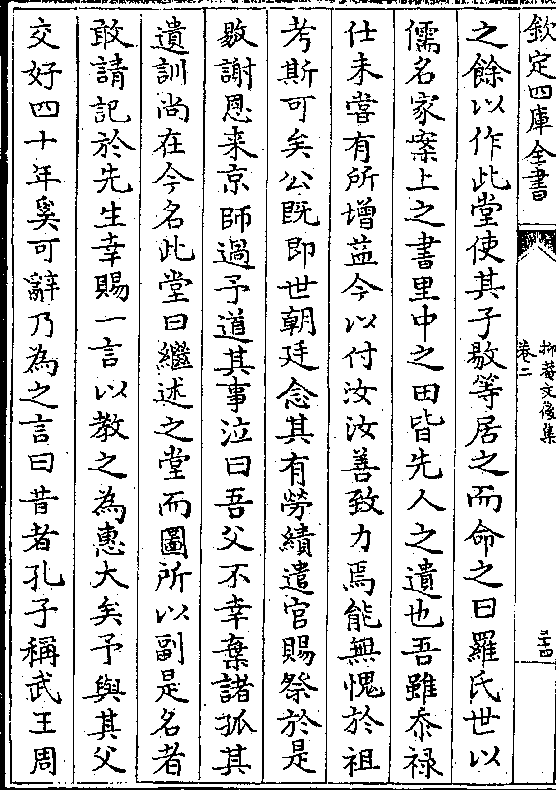 欽定四庫全書
抑菴文後集
卷二
三十四
之餘以作此堂使其子敭等居之而命之曰羅氏世以
儒名家案上之書里中之田皆先人之遺也吾雖忝禄
仕未嘗有所增益今以付汝汝善致力焉能無愧於祖
考斯可矣公既即世朝廷念其有勞績遣官賜祭於是
敭謝恩来京師過予道其事泣曰吾父不幸棄諸孤其
遺訓尚在今名此堂曰繼述之堂而圖所以副是名者
敢請記於先生幸賜一言以教之為惠大矣予與其父
交好四十年奚可辭乃為之言曰昔者孔子稱武王周